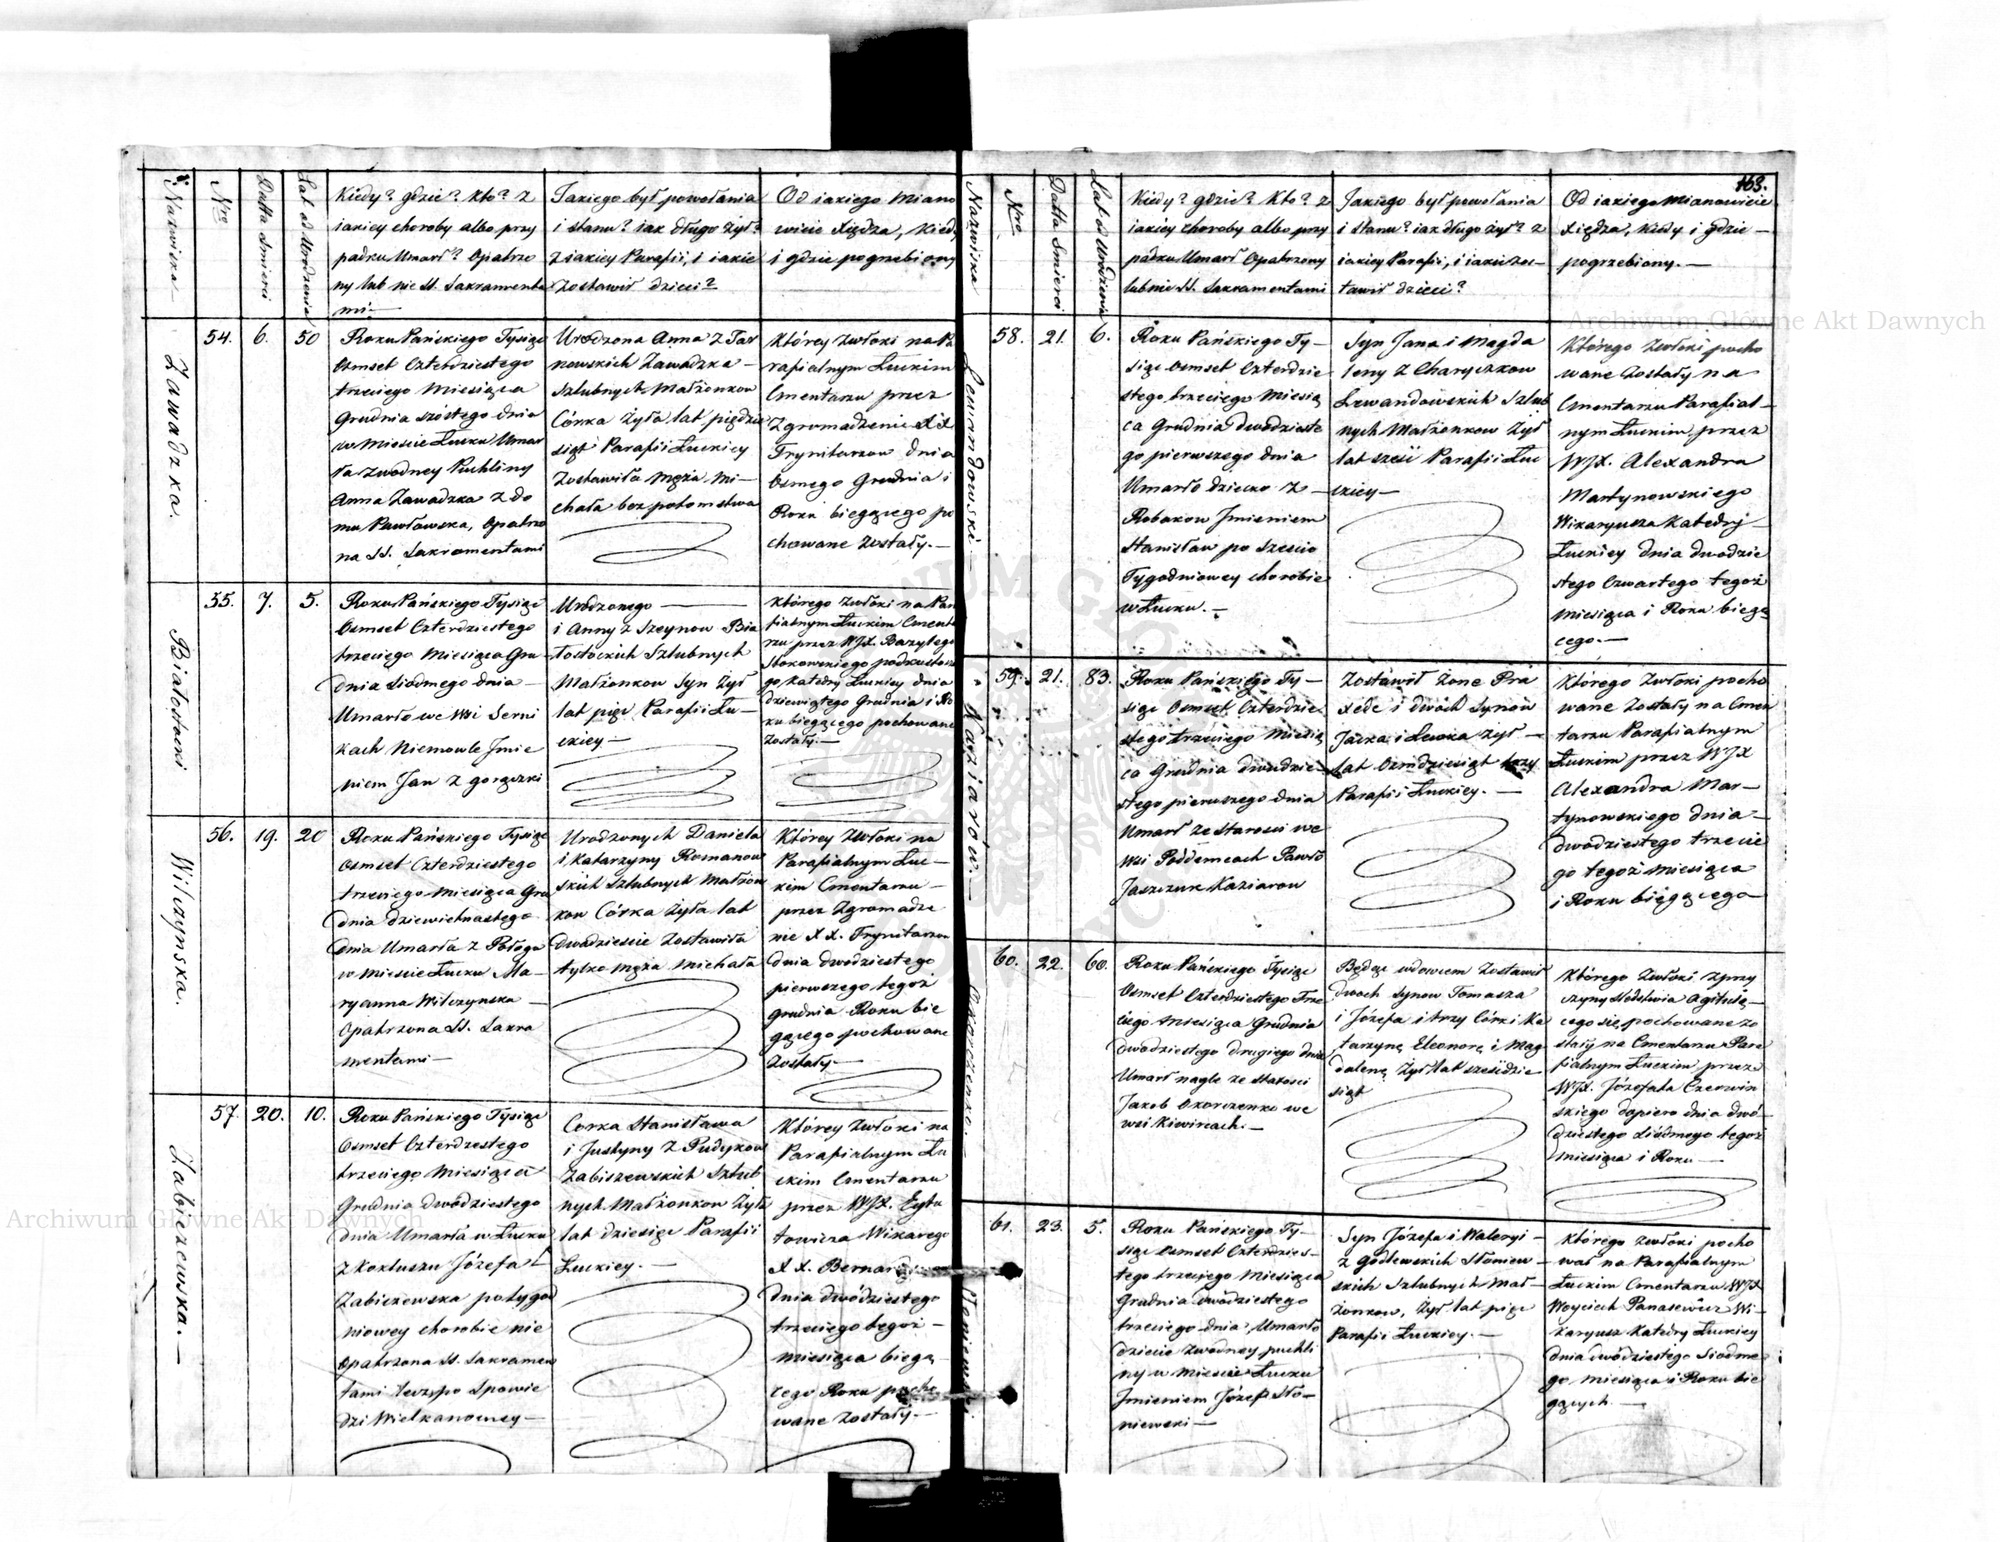 Nazwiska
Nro
Datta Smierci
Lat od Urodzenia
Kiedy? gdzie? kto? z
iakiey choroby albo przy
padku Umarł? Opatrzo
ny lub nie SS. Sakramenta
mi—
Jakiego był powołania
i stanu? iak długo żył?
z iakiey Parafii, i iakie
zostawił dzieci?
Od iakiego Miano
wicie Xiędza, Kiedy
i gdzie pogrzebiony
Zawadzka.
54.
6.
50
Roku Pańskiego Tysiąc
Osmset Czterdziestego
trzeciego Miesiąca
Grudnia szóstego dnia
w Miescie Łucku Umar
ła z wodney Puchliny
Anna Zawadzka z do
mu Pawłowska, Opatrzo
na SS. Sakramentami
Urodzona Anna z Tar
nowskich Zawadzka—
Szlubnych Małżonkow
Córka żyła lat pięćdzie
siąt Parafii Łuckiey
zostawiła męża Mi—
chała bez potomstwa
Którey zwłoki na Pa
rafialnym Łuckim
Cmentarzu przez
Zgromadzenie XX
Trynitarzow dnia
Osmego Grudnia i
Roku bieżącego po
chowane zostały.—
Białostocki
55.
7.
5.
Roku Pańskiego Tysiąc
Osmset Czterdziestego
trzeciego Miesiąca Gru—
dnia siodmego dnia—
Umarło we Wsi Serni
kach Niemowle Jmie
niem Jan z gorączki
Urodzonego ———
i Anny z Szeynow Bia
łostockich Szlubnych
Małżonkow Syn żył
lat pięć Parafii Łu—
ckiey—
Którego zwłoki na Para
fialnym Łuckim Cmenta
rzu przez WJX. Bazylego
Stokowskiego podkustosze
go, Katedry Łuckiey dnia
dziewiątego Grudnia i Ro
ku bieżącego pochowane
zostały.—
Wilczynska.
56.
19.
20
Roku Pańskiego Tysiąc
Osmset Czterdziestego
trzeciego Miesiąca Gru
dnia dziewietnastego
dnia Umarła z Połogu
w Miescie Łucku Ma—
ryanna Wilczynska—
Opatrzona SS. Sakra
mentami—
Urodzonych Daniela
i Katarzyny Romanow
skich Szlubnych Małżon
kow Córka żyła lat
dwadziescie zostawiła
tylko męża Michała
Którey zwłoki na
Parafialnym Łuc—
kim Cmentarzu—
przez Zgromadze
nie XX. Trynitarzow
dnia dwódziestego
pierwszego tegoż
grudnia Roku bie
żącego pochowane
zostały—
Zabiczewska.—
57.
20.
10.
Roku Pańskiego Tysiąc
Osmset Czterdzestego
trzeciego Miesiąca
Grudnia dwódziestego
dnia Umarła w Łucku
z Kokluszu Józefa
Zabiczewska po tygod
niowey chorobie nie
Opatrzona SS. Sakramen
tami lecz po Spowie
dzi Wielkanocney—
Corka Stanisława
i Justyny z Pudykow
Zabiszewskich Szlub
nych Małżonkow żyła
lat dziesięć Parafii
Łuckiey.—
Którey zwłoki na
Parafialnym Łu
ckim Cmentarzu
przez WJX.
towicza Wikarego
XX. Bernar
dnia dwódziestego
trzeciego tegoż—
Miesiąca bieżą
cego Roku pocho
wane zostały—
163.
Nazwiska
Nro
Datta Smierci
Lat od Urodzenia
Kiedy? gdzie? Kto? z
iakiey choroby albo przy
padku Umarł Opatrzony
lub nie SS. Sakramentami
Jakiego był powołania
i stanu? iak długo żył? z
iakiey Parafii, i iakie zos—
tawił dzieci?
Od iakiego mianowicie
Xiędza, Kiedy i gdzie—
pogrzebiony.—
Lewandowski—
58.
21.
6.
Roku Pańskiego Ty—
siąc Osmset Czterdzie
stego trzeciego Miesią
ca Grudnia dwódzieste
go pierwszego dnia
Umarło dziecko z—
Robakow Jmieniem
Stanisław po Szescio
Tygodniowey chorobie
w Łucku.—
Syn Jana i Magda
leny z Charyczkow
Lewandowskich Szlub
nych Małżonkow żył
lat sześć Parafii Łuc
kiey—
Którego zwłoki pocho
wane zostały na
Cmentarzu Parafial—
nym Łuckim, przez
WJX. Alexandra
Martynowskiego
Wikaryusza Katedry
Łuckiey dnia dwudzie
stego Czwartego tegoż
Miesiąca i Roku bieżą
cego.—
Kaziarow.
59.
21.
83.
Roku Pańskiego Ty—
siąc Osmset Czterdzie
stego trzeciego Miesią
ca Grudnia dwudzie—
stego pierwszego dnia
Umarł ze starosci we
Wsi Poddemcach Pawło
Jaszczuk Kaziarow
Zostawił żone Pra
xede i dwóch Synow
Jacka i Lewka żył—
lat Osmdziesiąt trzy
Parafii Łuckiey.—
Którego zwłoki pocho
wane zostały na Cmen
tarzu Parafialnym
Łuckim przez WJX
Alexandra Mar—
tynowskiego dnia—
dwódziestego trzecie
go tegoż miesiąca
i Roku bieżącego—
Okorczenko.
60.
22.
60.
Roku Pańskiego Tysiąc
Osmset Czterdziestego Trze
ciego Miesiąca Grudnia
dwódziestego drugiego dnia
Umarł nagle ze starosci
Jakob Okorczenko we
wsi Kiwircach.—
Będąc wdowcem zostawił
dwoch Synow Tomasza
i Józefa i trzy Córki Ka
tarzynę Eleonorę i Mag
dalenę żył lat sześćdzie
siąt
Którego zwłoki z przy
czyny sledstwia agituią—
cego się pochowane zo
stały na Cmentarzu Para
fialnym Łuckim przez
WJX. Józefata Czerwin
skiego dopiero dnia dwó—
dziestego siódmego tegoż
Miesiąca i Roku—
Słoniewski
61.
23.
5.
Roku Pańskiego Ty—
siąc Osmset Czterdzies—
tego trzeciego Miesiąca
Grudnia dwódziestego
trzeciego dnia Umarło
dziecie z wodney puchli
ny w miescie Łucku
Jmieniem Józef Sło—
niewski—
Syn Józefa i Waleryi—
z Godlewskich Słoniew—
skich Szlubnych Mał—
żonkow, żył lat pięć
Parafii Łuckiey.—
Którego zwłoki pocho
wał na Parafialnym
Łuckim Cmentarzu WJX
Woyciech Panasewicz Wi—
karyusz Katedry Łuckiey
dnia dwódziestego siodme
go, miesiąca i Roku bie
żących.—
Archiwum Główne Akt Dawnych
Archiwum Główne Akt Dawnych